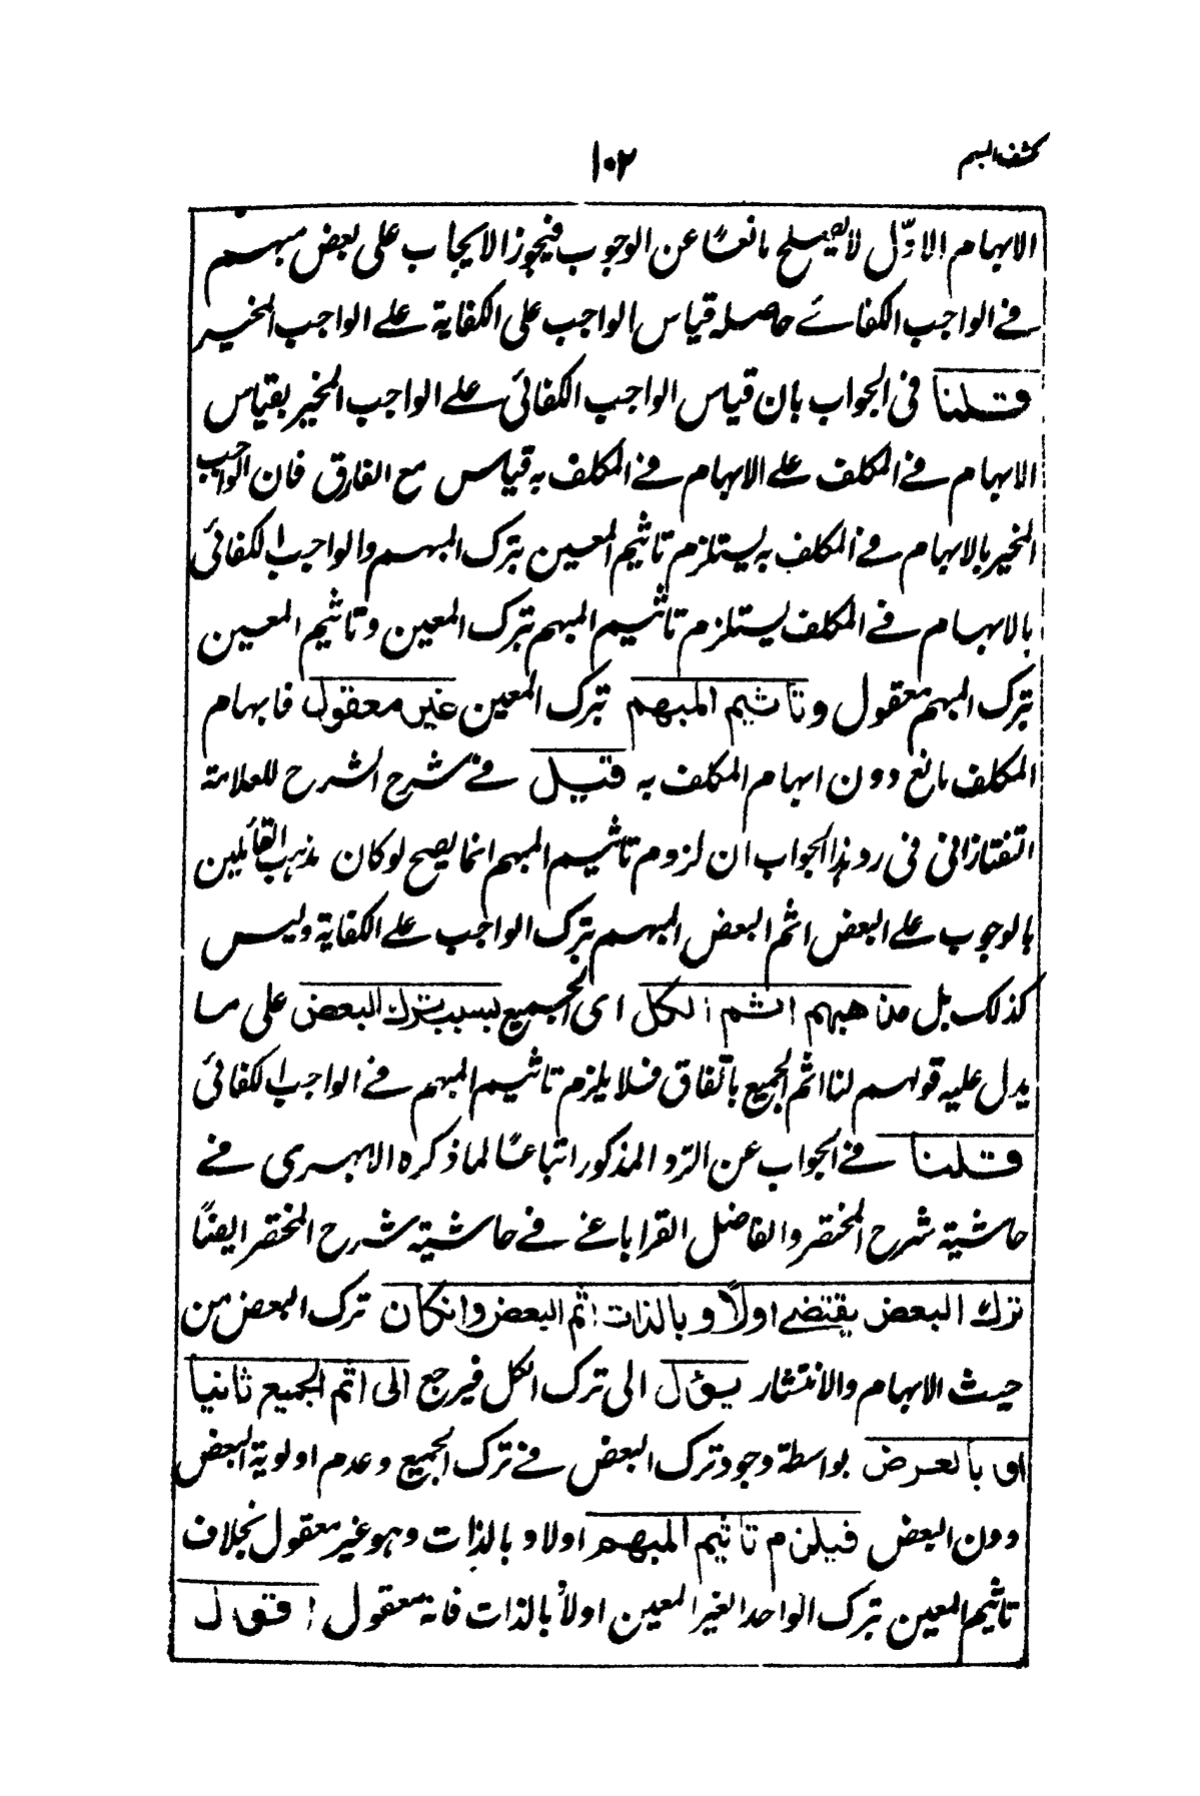 كشف المبهم
١٠٢
الابهام الاوّل لا يصلح مانعًا عن الوجوب فيجوز الايجاب على بعض مبهم
فى الواجب الكفائى حاصله قياس الواجب على الكفاية على الواجب المخير
قلنا فى الجواب بان قياس الواجب الكفائى على الواجب المخير بقياس
الابهام فى المكلف على الابهام فى المكلف به قياس مع الفارق فان الواجب
المخير بالابهام فى المكلف به يستلزم تاثيم المعين بترك المبهم والواجب الكفائى
بالابهام فى المكلف يستلزم تاثيم المبهم بترك المعين وتاثيم المعين
بترك المبهم معقول وتاثيم المبهم بترك المعين غير معقول فابهام
المكلف مانع دون ابهام المكلف به قيل فى شرح الشرح للعلامة
التفتازانى فى رد هذا الجواب ان لزوم تاثيم المبهم انما يصح لو كان مذهب القائلين
بالوجوب على البعض اثم البعض المبهم بترك الواجب على الكفاية وليس
كذلك بل مذهبهم اثم الكل اى الجميع بسبب ترك البعض على ما
يدل عليه قولهم لنا اثم الجميع باتفاق فلا يلزم تاثيم المبهم فى الواجب الكفائى
قلنا فى الجواب عن الرد المذكور اتباعًا لما ذكره الابهرى فى
حاشية شرح المختصر والفاضل القراباغى فى حاشية شرح المختصر ايضًا
ترك البعض يقتضى اولًا وبالذات اثم البعض وان كان ترك البعض من
حيث الابهام والانتشار يؤل الى ترك الكل فيرجع الى اثم الجميع ثانيا
او بالعرض بواسطة وجود ترك البعض فى ترك الجميع وعدم اولوية البعض
دون البعض فيلزم تاثيم المبهم اولا وبالذات وهو غير معقول بخلاف
تاثيم المعين بترك الواحد الغير المعين اولاً بالذات فانه معقول اقول